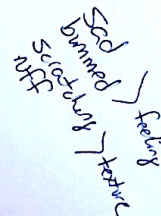 sad
bummed
feeling
scratching
texture